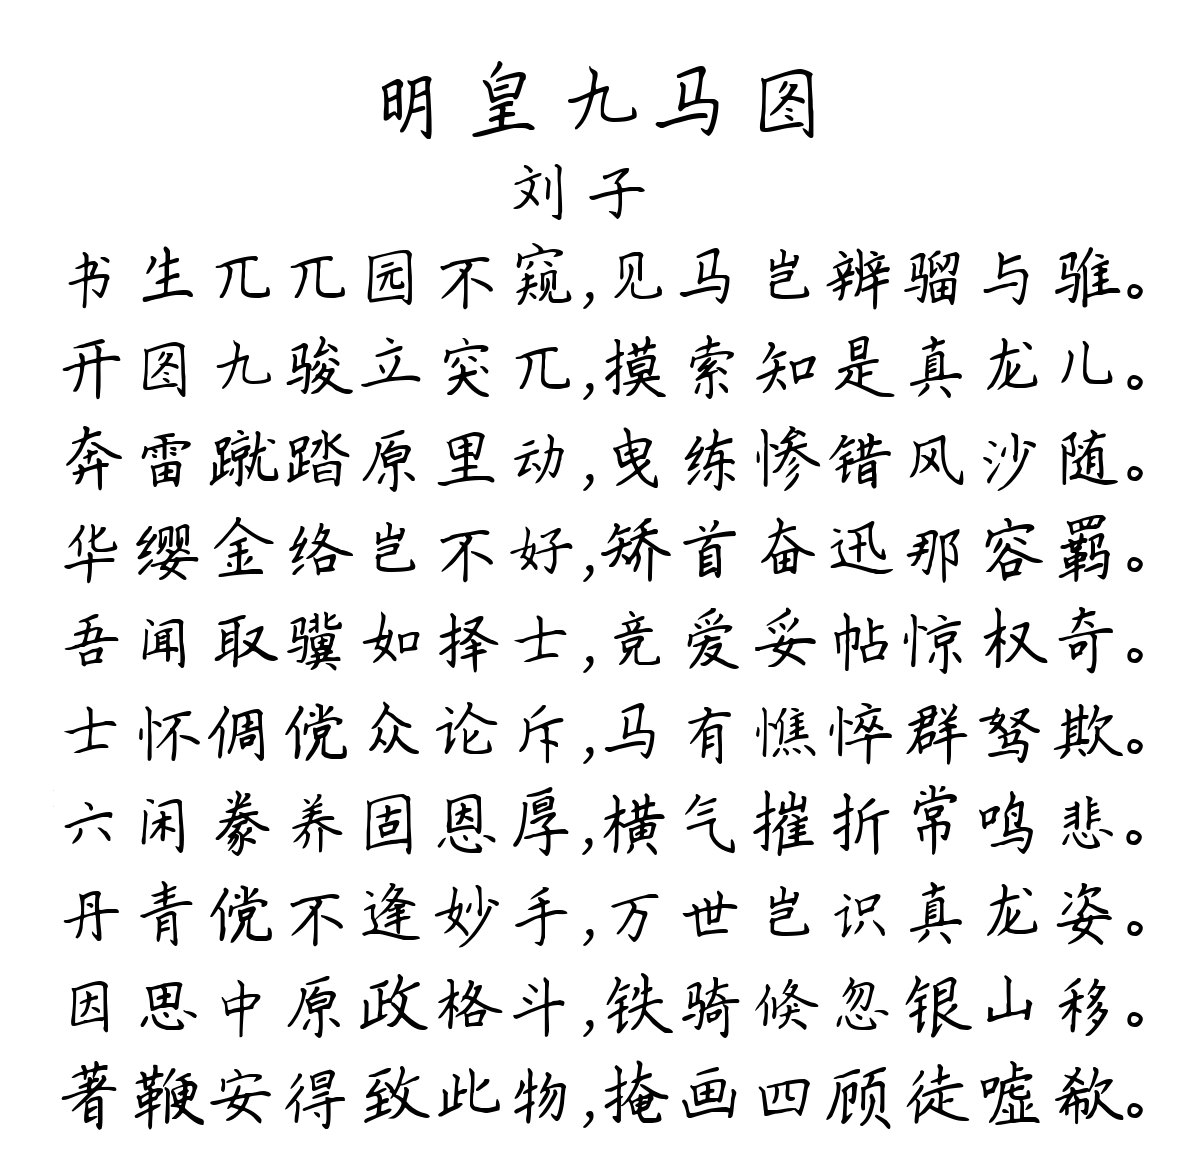 明皇九马图
刘子
书生兀兀园不窥,见马岂辨骝与骓。
开图九骏立突兀,摸索知是真龙儿。
奔雷蹴踏原里动,曳练惨错风沙随。
华缨金络岂不好,矫首奋迅那容羁。
吾闻取骥如择士,竞爱妥帖惊权奇。
士怀倜傥众论斥,马有憔悴群驽欺。
六闲豢养固恩厚,横气摧折常鸣悲。
丹青傥不逢妙手,万世岂识真龙姿。
因思中原政格斗,铁骑倏忽银山移。
著鞭安得致此物,掩画四顾徒嘘欷。